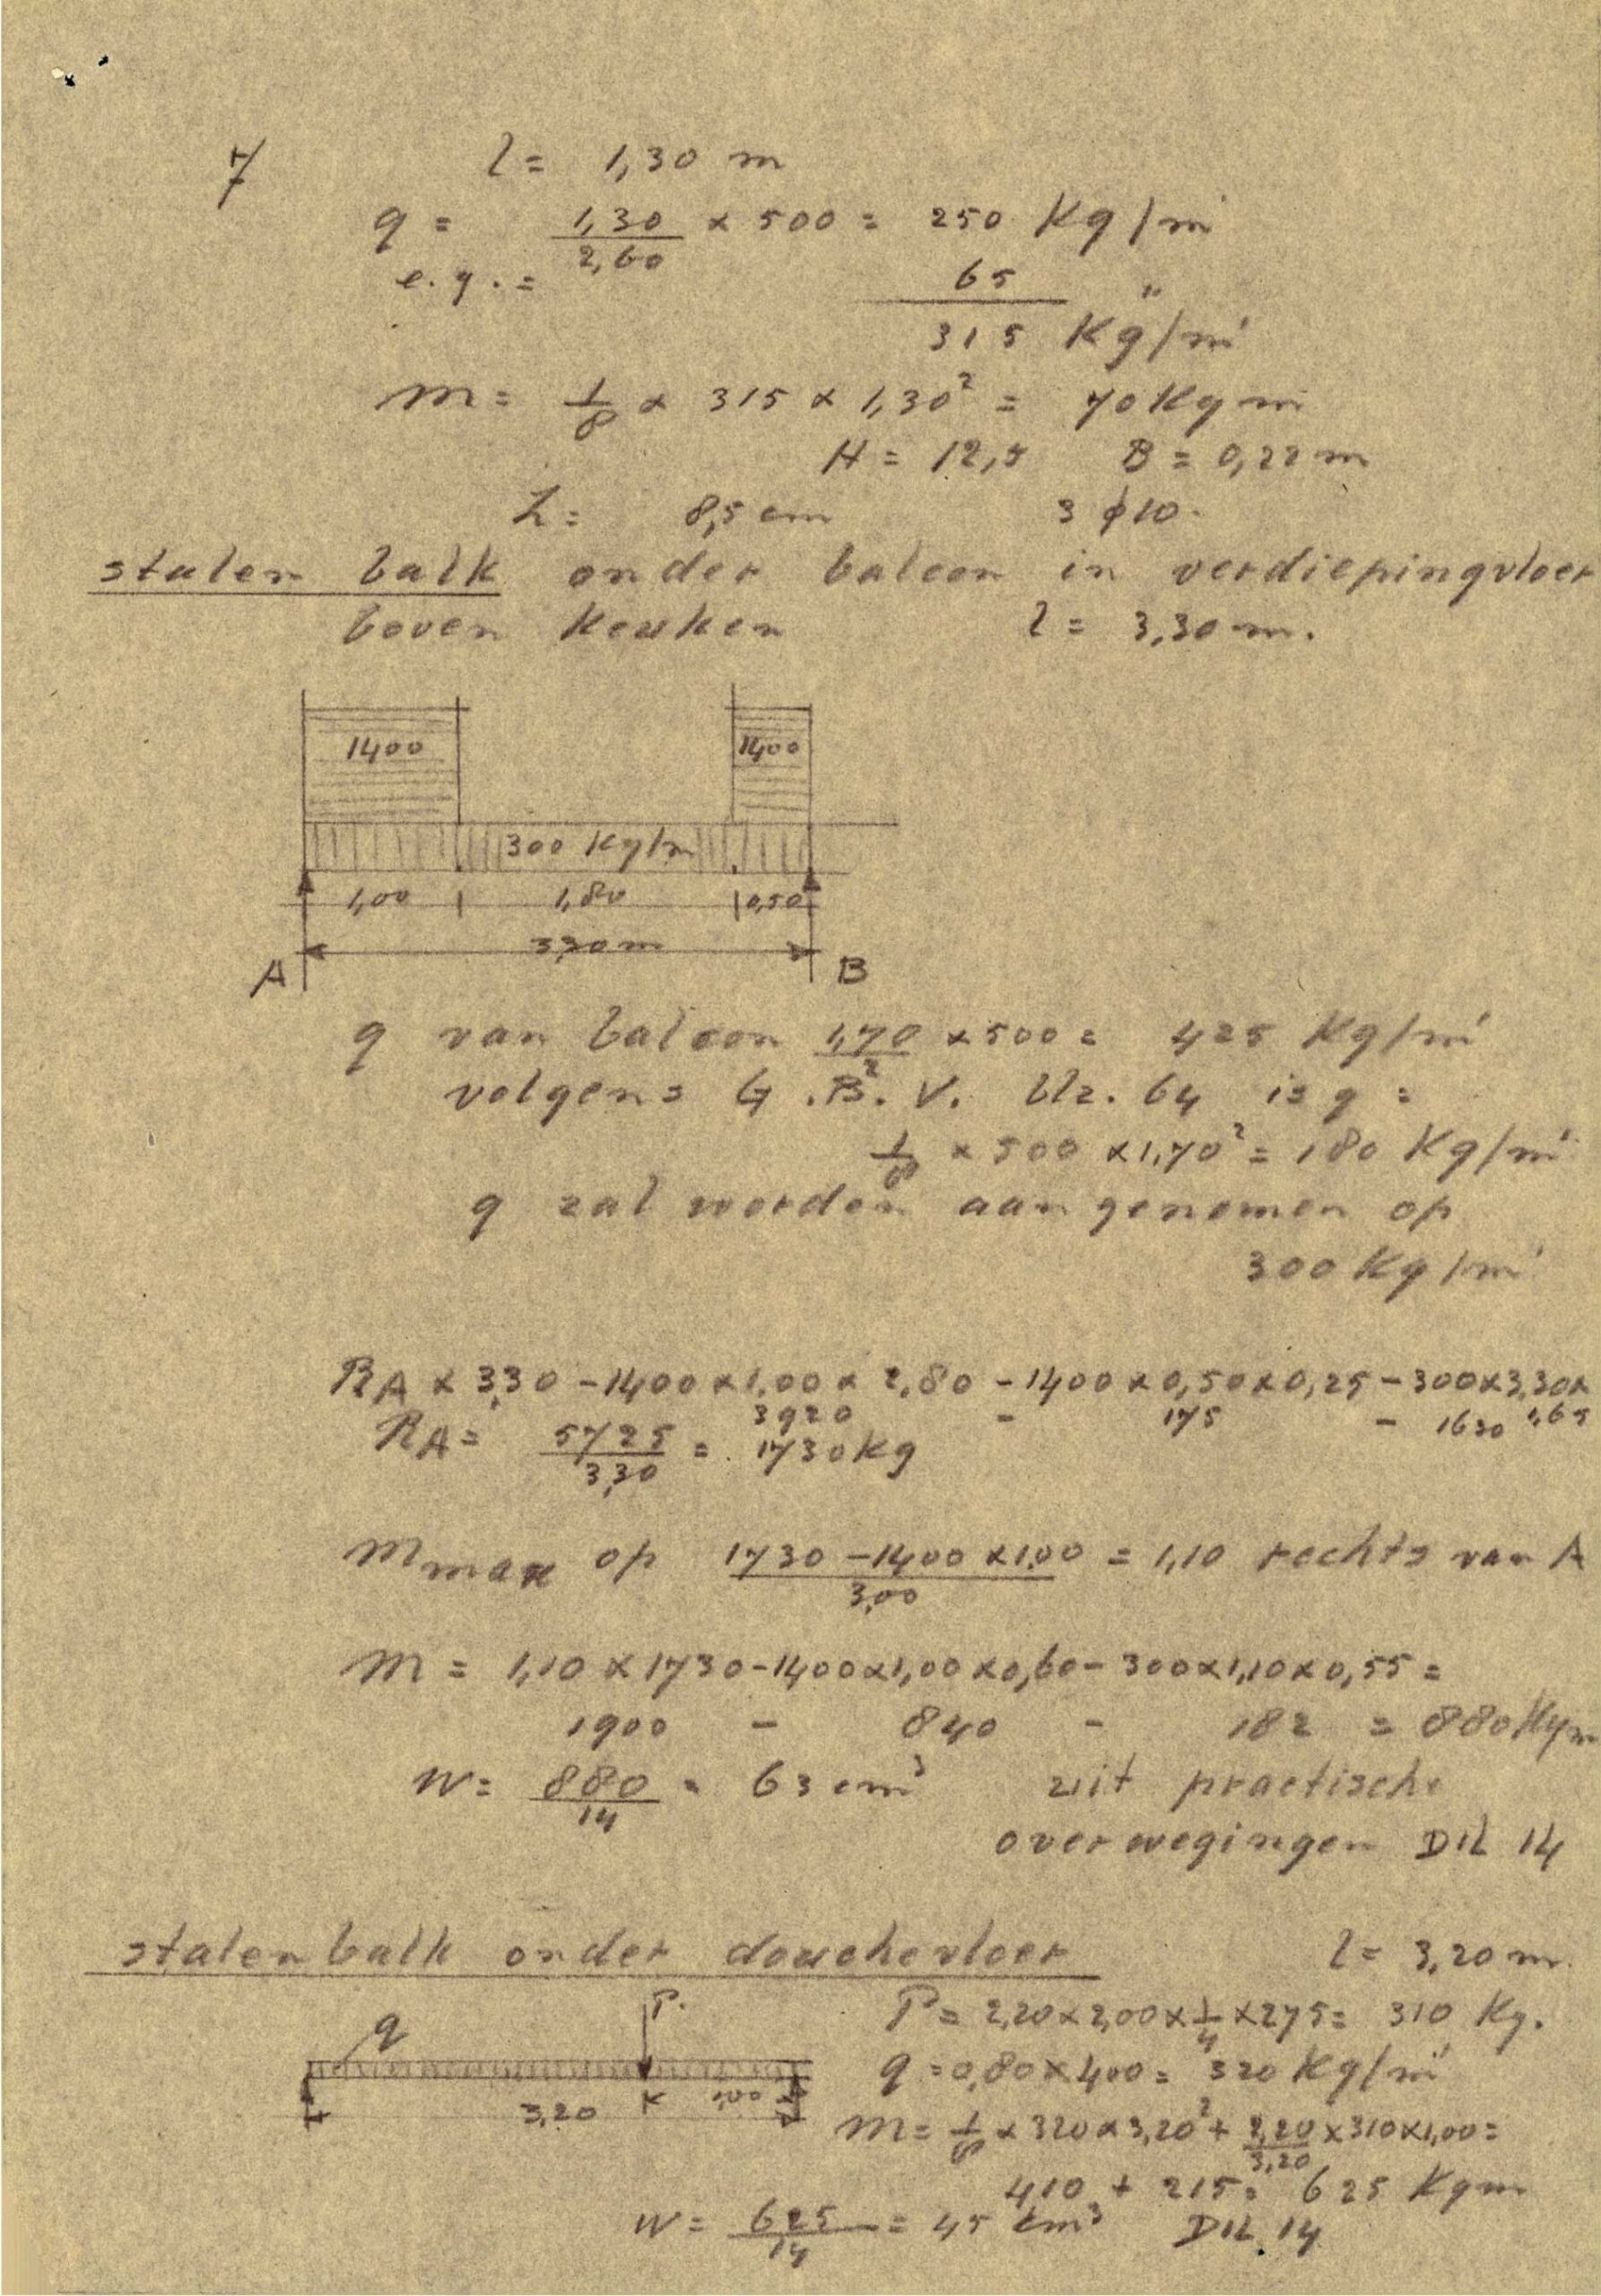 7 l = 1,30 m
q = 1,30/2,60 × 500 = 250 Kg/m'
e.g. = 65 "
315 Kg/m'
M = 1/8 × 315 × 1,30² = 70 Kgm
H = 12,5 B = 0,22 m
h = 8,5 cm 3 φ10.
stalen balk onder balcon in verdiepingvloer
boven keuken l = 3,30 m.
1400 1400
300 Kg/m
1,00 1,80 0,50
3,30 m
A B
q van balcon 1,70/2 × 500 = 425 Kg/m'
volgens G.B.V. blz. 64 is q =
1/8 × 500 × 1,70² = 180 Kg/m'
q zal worden aangenomen op
300 Kg/m'
RA × 3,30 - 1400 × 1,00 × 2,80 - 1400 × 0,50 × 0,25 - 300 × 3,30 × 1,65
3920 - 175 - 1630
RA = 5725/3,30 = 1730 kg
Mmax op 1730 - 1400 × 1,00/3,00 = 1,10 rechts van A
M = 1,10 × 1730 - 1400 × 1,00 × 0,60 - 300 × 1,10 × 0,55 =
1900 - 840 - 182 = 880 Kgm
W = 880/14 = 63 cm³ uit practische
overwegingen DIL 14
stalen balk onder douchevloer l = 3,20 m.
q P.
3,20 K 1,00
P = 2,20 × 2,00 × 1/4 × 275 = 310 Kg.
q = 0,80 × 400 = 320 Kg/m'
M = 1/8 × 320 × 3,20² + 2,20/3,20 × 310 × 1,00 =
410 + 215 = 625 Kgm
W = 625/14 = 45 cm³ DIL 14